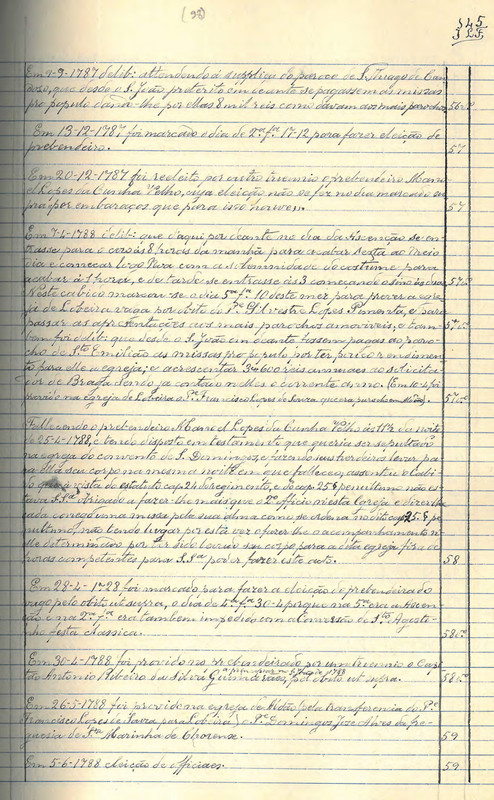 (93)
345
Em 9-9-1787 delib: attendendo á supplica do parocho de S. Thiago de Can-
dozo, que desde o S. João preterito em deante se pagassem as missas
pro populo dando-lho por ellas 8 mil reis como davam aos mais parochos. 56v.º
Em 13-12-1787 foi marcado o dia de 2ª fª 17-12 para fazer eleição de
prebendeiro. 57
Em 20-12-1787 foi reeleito por outro triennio o prebendeiro Mano-
el Lopes da Cunha Velho, cuja eleição não se fez no dia marcado su-
pra, por embaraços que para isso houvera. 57
Em 7-4-1788 delib: que d'aqui por deante no dia da Ascenção se en-
trasse para o coro ás 8 horas da manhã para acabar Sexta ao meio
dia e começar logo Nôa com a solemnidade do costume para
acabar á 1 hora, e de tarde se entrasse ás 3 começando o sino ás duas. 57v.º
N'este cabido marcou-se o dia 5ª fª 10 deste mez para prover a egre-
ja de Lobeira vaga por obito do Pe Silvestre Lopes Pimenta, e para
passar as apresentações aos mais parochos amoviveis; e tam- 57v.º
bem foi delib: que desde o S. João em deante fossem pagas ao paro-
cho de Sto Emilião as missas pro populo, por ter pouco rendimen-
to para elle a egreja; e accrescentar 34600 reis annuaes ao solicita-
dor de Braga sendo já contado n'elles o corrente anno. (Em 10-4 foi
provido na egreja de Lobeira o Pe Francisco Lopes de Souza, que era parocho em Atães). 57v.º
Fallecendo o prebendeiro Manoel Lopes da Cunha Velho ás 11 ½ da noite
de 25-4-1788, e tendo disposto em testamento que queria ser sepultado
na egreja do convento de S. Domingos, e fazendo seus herdeiros levar pa-
ra ella seu corpo na mesma noite em que falleceu, assentou o cabi-
do que á vista do estatuto cap. 24 do regimento, e do cap. 25 § penultimo não es-
tava S. Sª obrigado a fazer-lhe mais que o 2º officio n'esta Egreja e dizer-lhe
cada conego uma missa pela sua alma como se ordena no dito cap. 25 § pe-
nultimo, não tendo logar por esta vez o fazer-lhe o acompanhamento n'
elle determinado, por ter sido levado seu corpo para a dita egreja fóra de
horas competentes para S. Sª poder fazer este acto. 58
Em 28-4-1728 foi marcado para fazer a eleição de prebendeiro
vago pelo obito ut supra, o dia de 4ª fª 30-4 porque na 5ª era a Ascen-
ção e na 2ª fª era tambem impedido com a Conversão de Sto Agosti-
nho festa classica. 58v.º
Em 30-4-1788 foi provido no prebendeirado por um triennio o Capi-
tão Antonio Ribeiro da Silva Guimarães, pelo obito ut supra. 58v.º
Em 26-5-1788 foi provido na egreja de Atães (pela transferencia do Pe
Francisco Lopes de Souza para Lobeira) o Pe Domingos José Alves da fre-
guesia de Sta Marinha de Chorense. 59
Em 5-6-1788 eleição de officiaes. 59